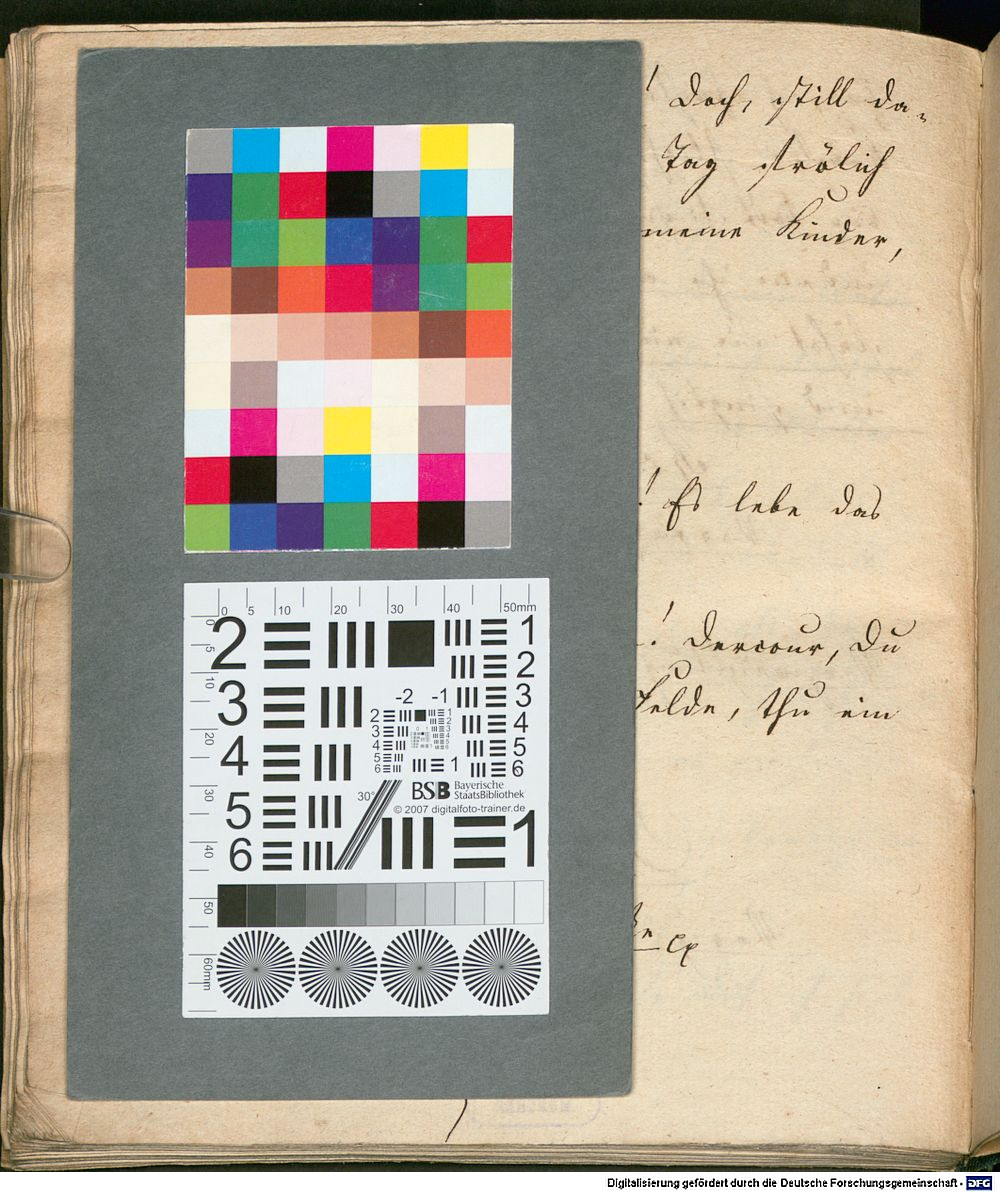 ! Doch, still da-
Tag frölich
meine Kinder,
! Es lebe das
! Dercour, Du
felde, thu ein
0 5 10 20 30 40 50mm
0 5 10 20 30 40 50 60mm
2
3
4
5
6
1
2
3
4
5
6
-2 -1
2
3
4
5
6
1
2
3
4
5
6
1
30°
BSB Bayerische
StaatsBibliothek
© 2007 digitalfoto-trainer.de
1
Digitalisierung gefördert durch die Deutsche Forschungsgemeinschaft - DFG